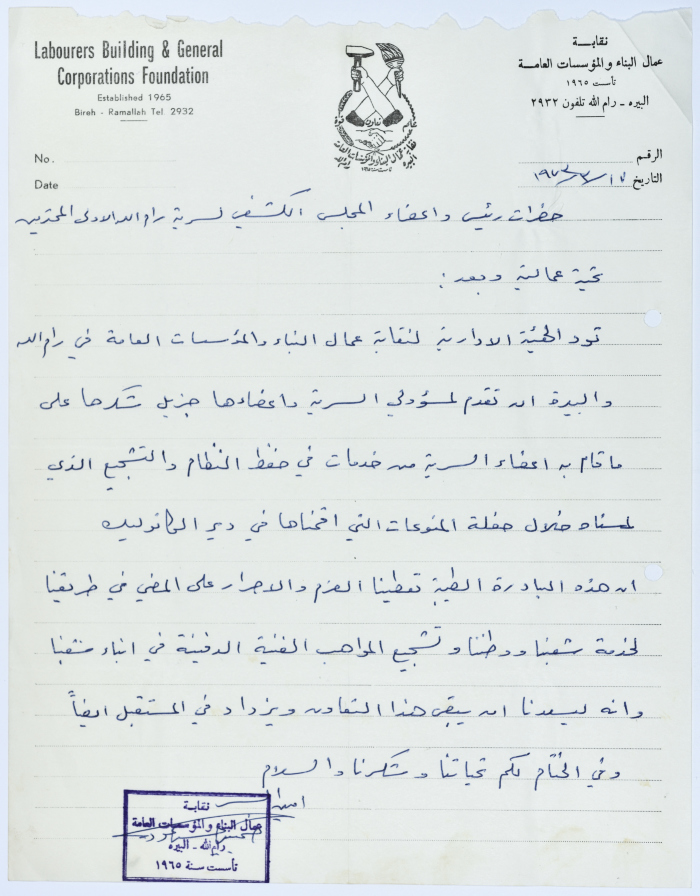 Labourers Building & General
Corporations Foundation
Established 1965
Bireh - Ramallah Tel. 2932
نقابـــة
عمال البناء والمؤسسات العامـــة
تأسست ١٩٦٥
البيره - رام الله تلفون ٢٩٣٢
تعاون
No.
Date
الرقم
التاريخ ١٧/٣/١٩٧٣
حضرات رئيس واعضاء المجلس الكشفي لسرية رام الله الاولى المحترمين
تحية عمالية وبعد :
تود الهيئة الادارية لنقابة عمال البناء والمؤسسات العامة في رام الله
والبيرة ان تقدم لمسؤولي السرية واعضاءها جزيل شكرها على
ما قام به اعضاء السرية من خدمات في حفظ النظام والتشجيع الذي
لمسناه خلال حفلة المنوعات التي اقمناها في دير الكاثوليك
ان هذه البادرة الطيبة تعطينا العزم والاصرار على المضي في طريقنا
لخدمة شعبنا ووطننا وتشجيع المواهب الفنية الدفينة في ابناء شعبنا
وانه ليسعدنا ان يبقى هذا التعاون ويزداد في المستقبل ايضاً
وفي الختام لكم تحياتنا وشكرنا والسلام
نقابـــة
عمال البناء والمؤسسات العامة
رام الله - البيره
تأسست سنة ١٩٦٥